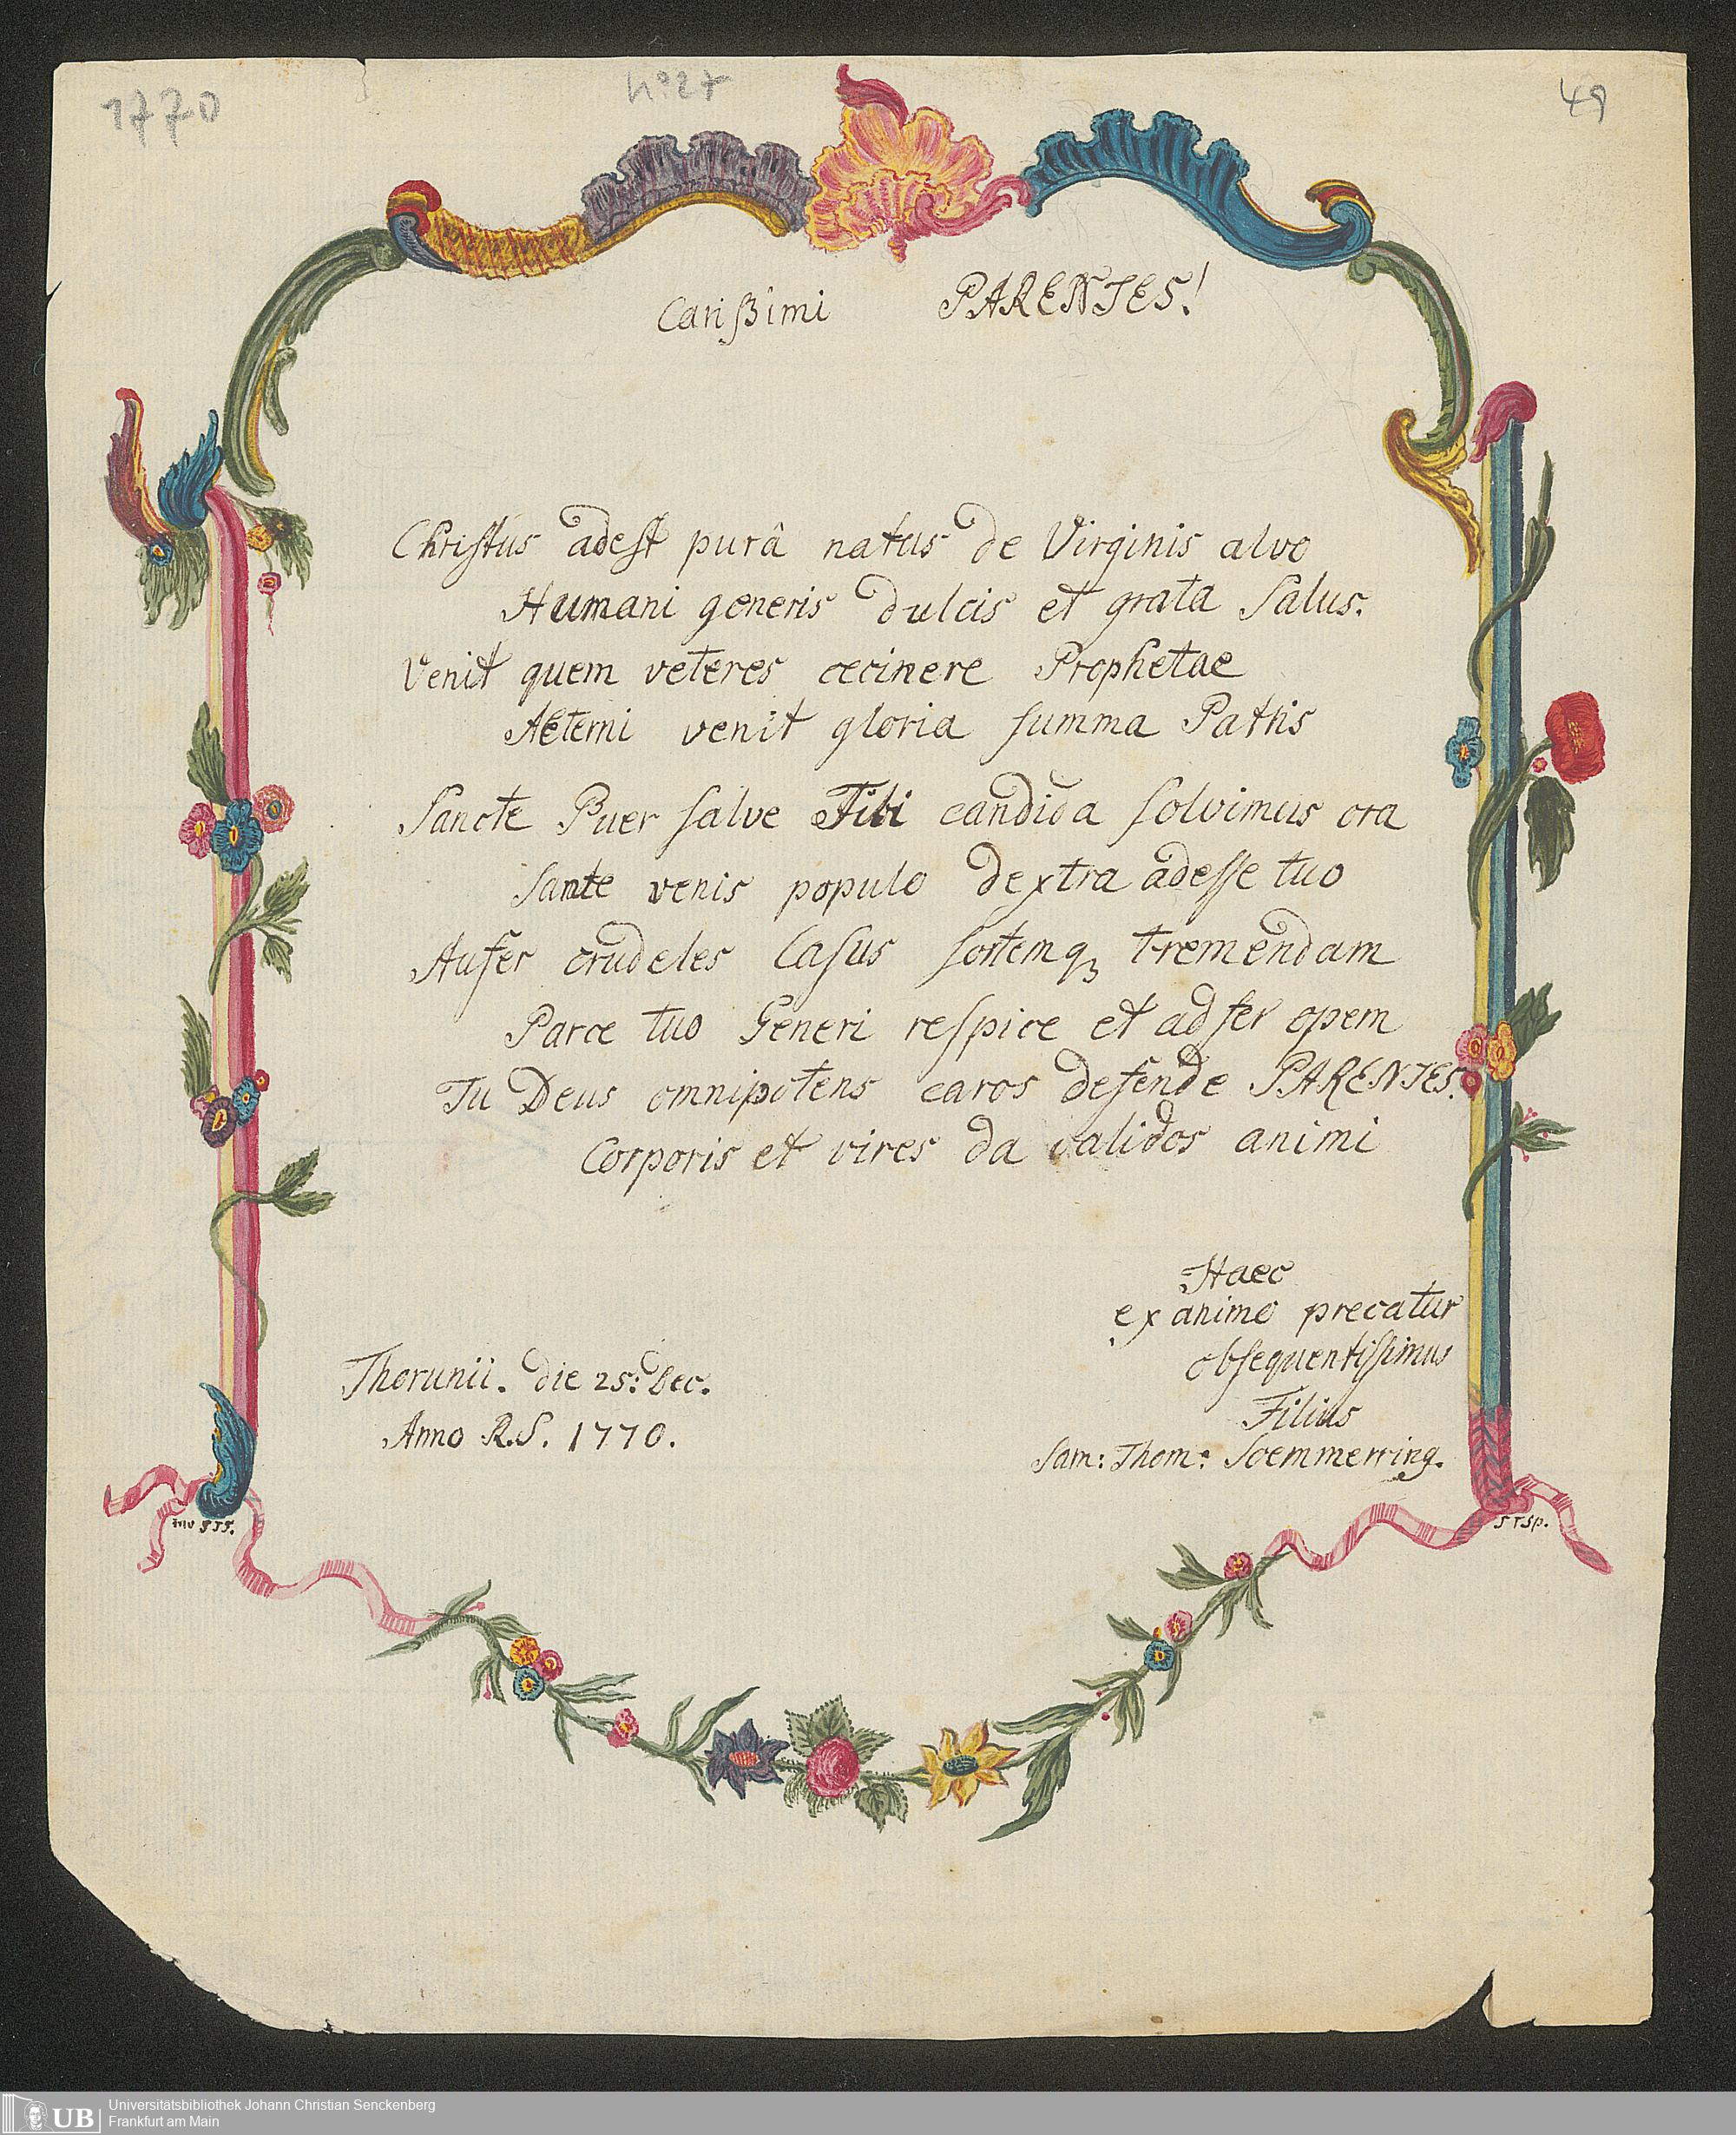 1770
No 27
49
Carißimi PARENTES!
Christus adest purâ natus de Virginis alvo
Humani generis dulcis et grata Salus.
Venit quem veteres cecinere Prophetae
Aeterni venit gloria summa Patris
Sancte Puer salve Tibi candida solvimus ora
Sante venis populo dextra adesse tuo
Aufer crudeles Casus sortemq3 tremendam
Parce tuo Generi respice et adfer opem
Tu Deus omnipotens caros defende PARENTES.
Corporis et vires da validos animi
Haec
ex animo precatur
obsequentissimus
Filius
Sam: Thom: Soemmerring.
Thorunii. die 25: Dec.
Anno R.S. 1770.
Universitätsbibliothek Johann Christian Senckenberg
Frankfurt am Main
UB